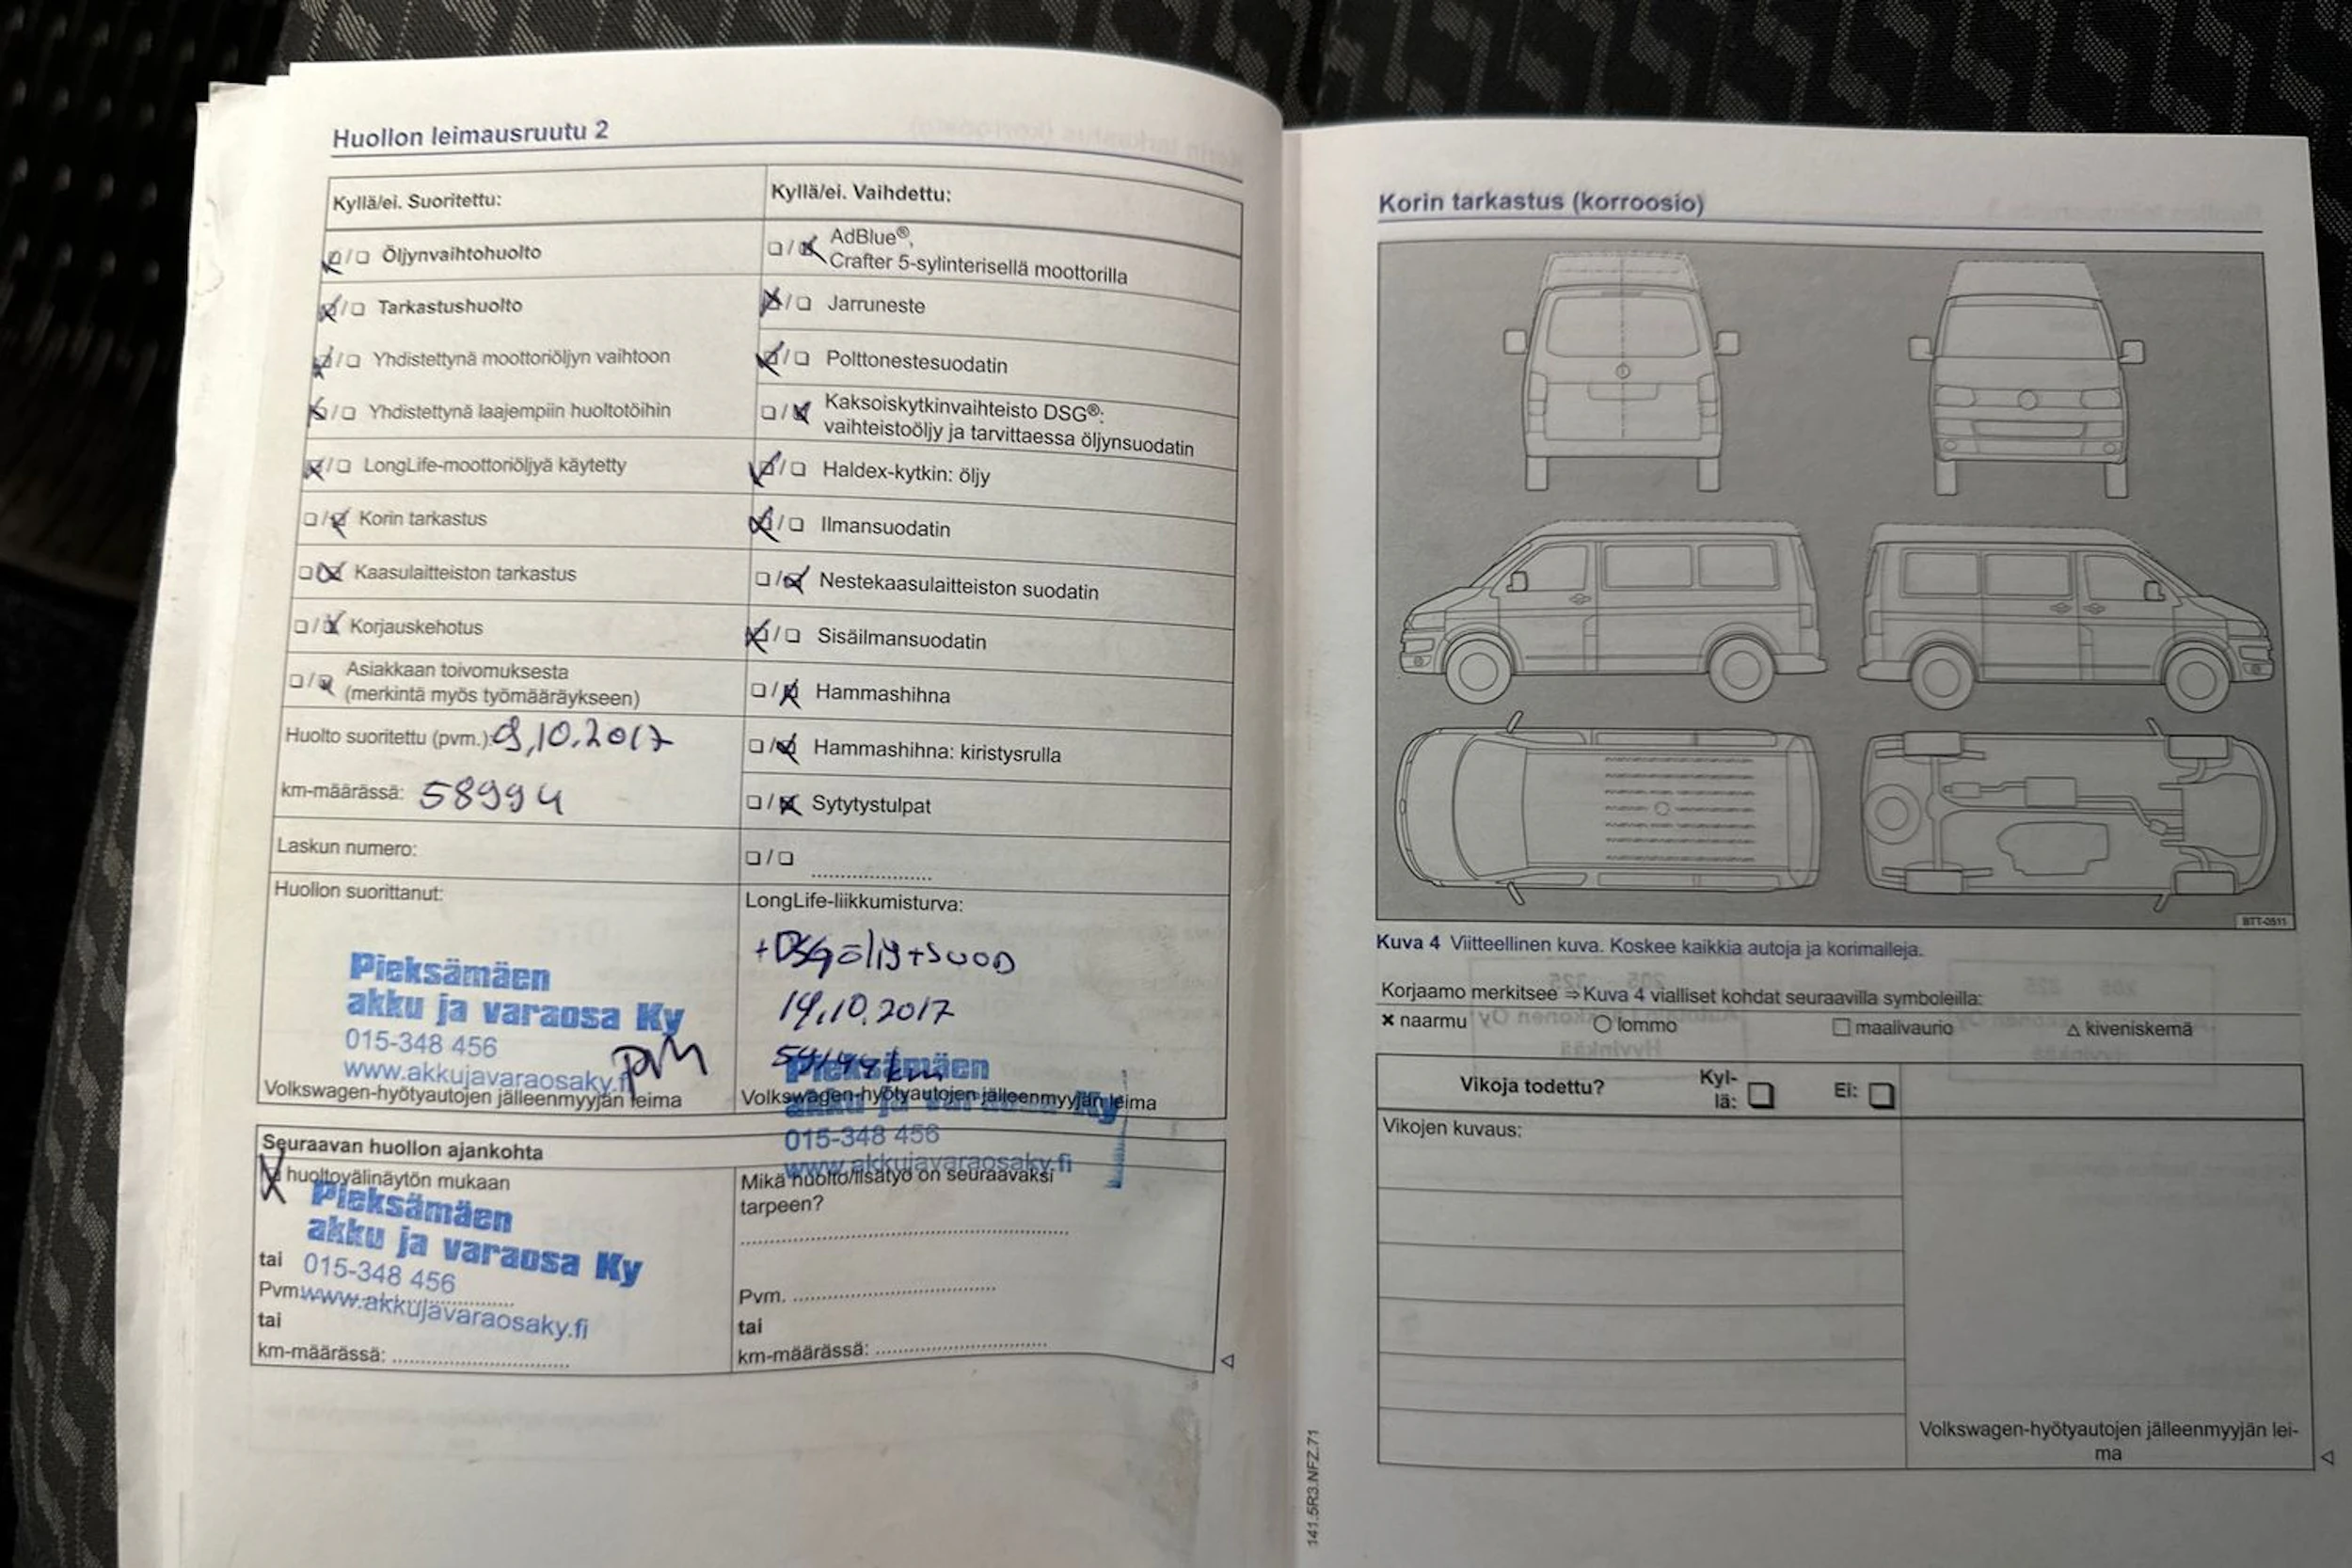 Huollon leimausruutu 2
Kyllä/ei. Suoritettu:
Öljynvaihtohuolto
Tarkastushuolto
Yhdistettynä moottoriöljyn vaihtoon
Yhdistettynä laajempiin huoltotöihin
LongLife-moottoriöljyä käytetty
Korin tarkastus
Kaasulaitteiston tarkastus
Korjauskehotus
Asiakkaan toivomuksesta
(merkintä myös työmääräykseen)
Huolto suoritettu (pvm.): 9,10.2017
km-määrässä: 58994
Laskun numero:
Huollon suorittanut:
Pieksämäen
akku ja varaosa Ky
015-348 456
www.akkujavaraosaky.fi
Volkswagen-hyötyautojen jälleenmyyjän leima
Kyllä/ei. Vaihdettu:
AdBlue®,
Crafter 5-sylinterisellä moottorilla
Jarruneste
Polttonestesuodatin
Kaksoiskytkinvaihteisto DSG®:
vaihteistoöljy ja tarvittaessa öljynsuodatin
Haldex-kytkin: öljy
Ilmansuodatin
Nestekaasulaitteiston suodatin
Sisäilmansuodatin
Hammashihna
Hammashihna: kiristysrulla
Sytytystulpat
LongLife-liikkumisturva:
+DSG öljy+SUOD
19.10.2017
km
Pieksämäen
Volkswagen-hyötyautojen jälleenmyyjän leima
akku ja varaosa Ky
015-348 456
www.akkujavaraosaky.fi
Seuraavan huollon ajankohta
huoltovälinäytön mukaan
Pieksämäen
akku ja varaosa Ky
tai 015-348 456
Pvm. www.akkujavaraosaky.fi
tai
km-määrässä:
Mikä huolto/lisätyö on seuraavaksi
tarpeen?
Pvm.
tai
km-määrässä:
Korin tarkastus (korroosio)
BTT-0511
Kuva 4 Viitteellinen kuva. Koskee kaikkia autoja ja korimalleja.
Korjaamo merkitsee ⇒ Kuva 4 vialliset kohdat seuraavilla symboleilla:
× naarmu ○ lommo □ maalivaurio △ kiveniskemä
Vikoja todettu? Kyl-
lä: Ei:
Vikojen kuvaus:
Volkswagen-hyötyautojen jälleenmyyjän lei-
ma
141.5R3.NFZ.71